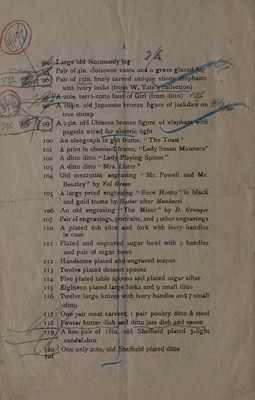 94 Large old Normandy jug
95 Pair of 4in. cloisonne vases and a green glazed jug
96 Pair of 15in. finely carved antique ebony elephants
with ivory tusks (from W. Yate's collection)
97 A 20in. terra-cotta bust of Girl (from ditto)
98 A 16in. old Japanese bronze figure of jackdaw on
tree stump
99 A 25in. old Chinese bronze figure of elephant with
pagoda wired for electric light
100 An oleograph in gilt frame, "The Toast"
101 A print in ebonised frame, "Lady Susan Manners"
102 A ditto ditto "Lady Playing Spinet"
103 A ditto ditto "Mrs.
104 Old mezzotint engraving "Mr. Powell and Mr.
Bentley" by Val Green
105 A large proof engraving "Ecce Homo" in black
and gold frame by after Munkacsi
106 An old engraving "The Miser" by D. Granger
107 Pair of engravings, portraits, and 3 other engravings
110 A plated fish slice and fork with ivory handles
in case
111 Plated and engraved sugar bowl with 2 handles
and pair of sugar bows
112 Handsome plated and engraved teapot
113 Twelve plated dessert spoons
114 Five plated table spoons and plated sugar sifter
115 Eighteen plated large forks and 9 small ditto
116 Twelve large knives with ivory handles and 7 small
ditto
117 One pair meat carvers, 1 pair poultry ditto & steel
118 Pewter butter dish and ditto jam dish and spoon
119 A fine pair of 18in. old Sheffield plated 3-light
candelabra
120 One only 20in. old Sheffield plated ditto
121